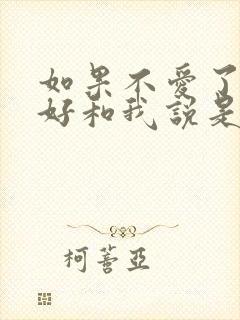 如果不愛了
好和我說是
柯薔亞